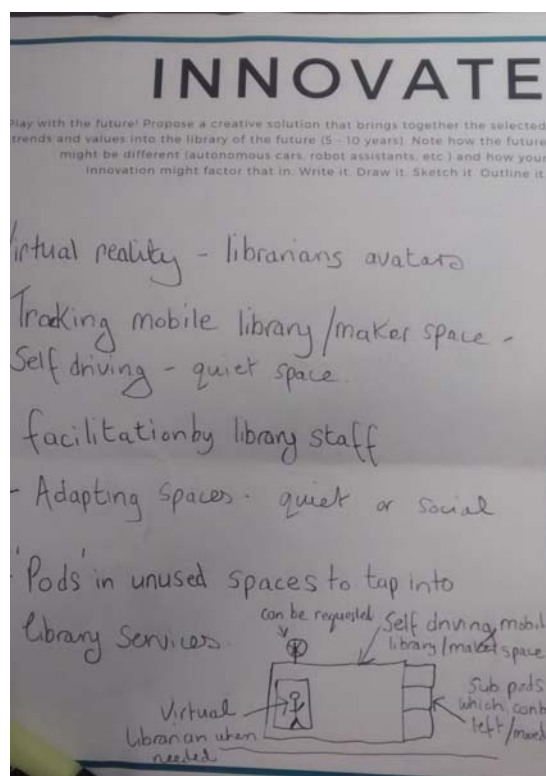 INNOVATE
Play with the future! Propose a creative solution that brings together the selected
trends and values into the library of the future (5 - 10 years). Note how the future
might be different (autonomous cars, robot assistants, etc.) and how your
innovation might factor that in. Write it. Draw it. Sketch it. Outline it.
Virtual reality - librarians avatars
Tracking mobile library/maker space -
Self driving - quiet space.
facilitation by library staff
- Adapting spaces. quiet or social
- 'Pods' in unused spaces to tap into
library services.
can be requested
Self driving, mobil
library/maker space
Virtual
librarian when
needed
Sub pods
which
left/moved